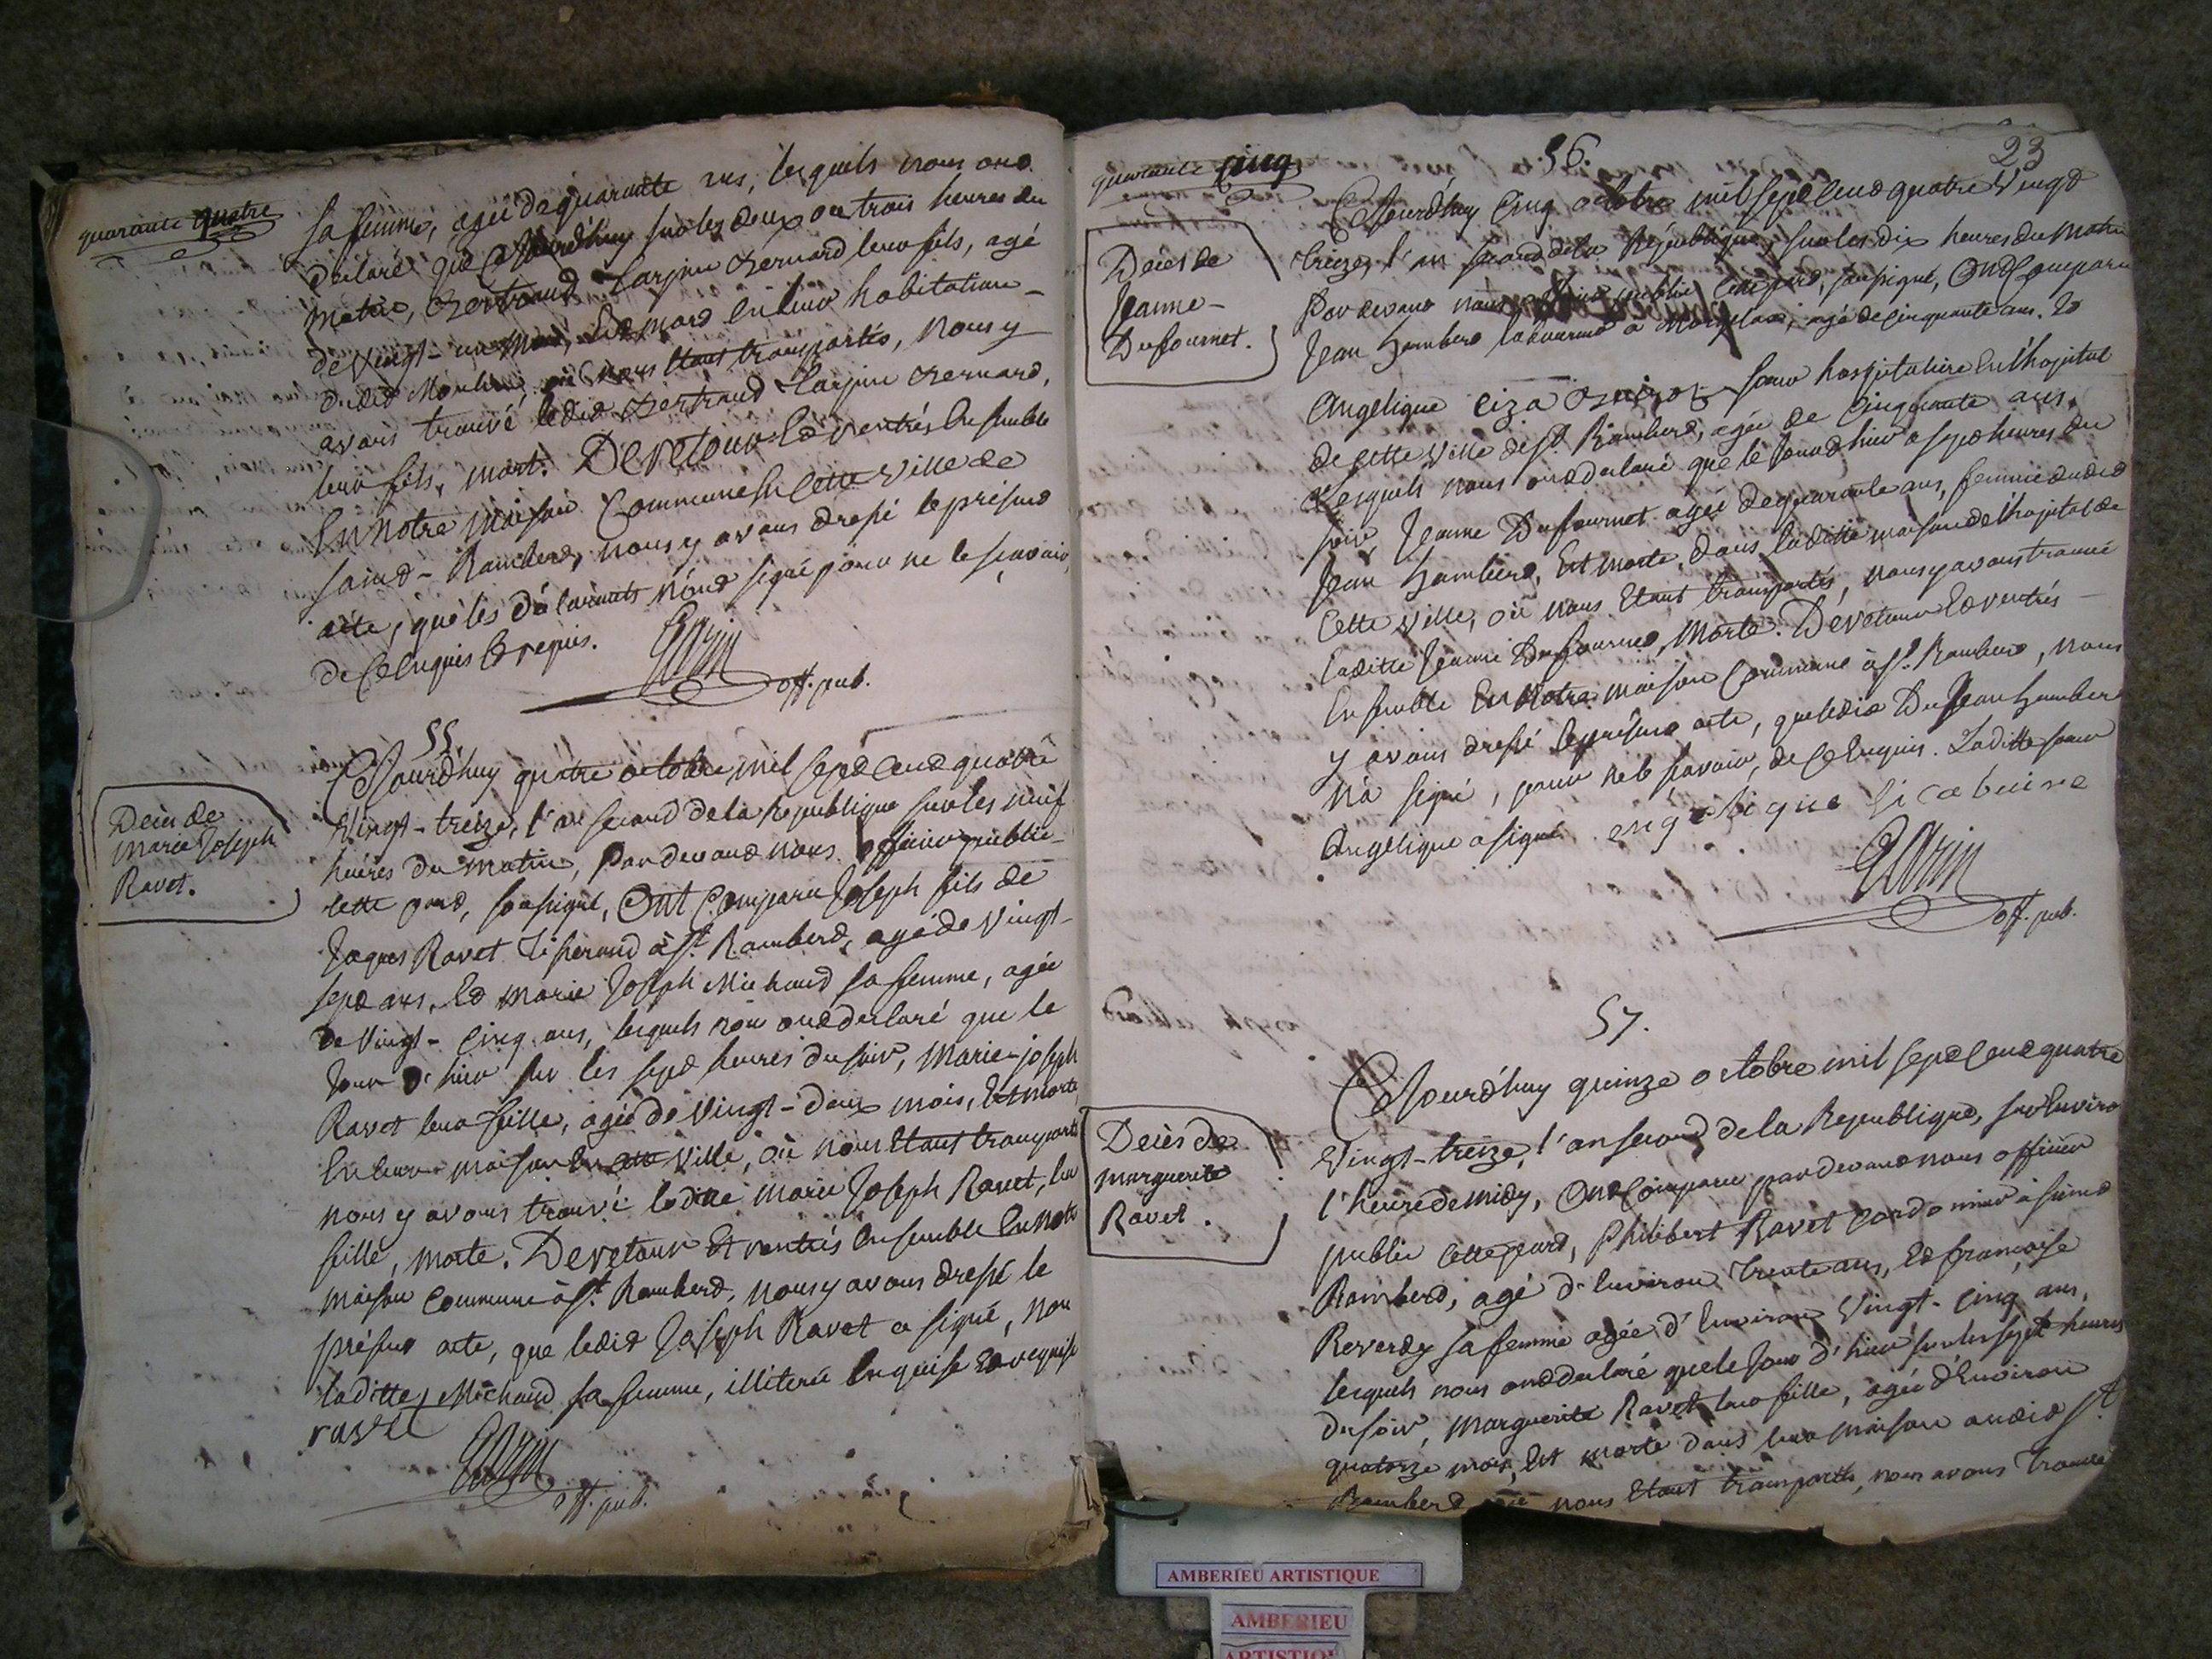 quarante quatre
sa femme, agée de quarante ans, lesquels nous ond
declaré que cejourd'huy sur les deux ou trois heures du
matin, Bertrand Larjin Bernard leur fils, agé
de vingt-un mois, Est mord en leur habitation
dudid Moulin, où nous étant transportés, nous y
avons trouvé ledid Bertrand Larjin Bernard,
leur fils, mort. De retour Ed rentrés Ensemble
En notre maison Commune En cette ville de
Saind-Ramberd, nous y avons dressé le présend
acte, que les déclarants n'ond signé pour ne le sçavoir,
de ce Enquis Et requis.
off. pub.
55
Décès de
marie Joseph
Ravet.
Cejourd'huy quatre octobre mil sepd cend quatre
Vingt-treize, l'an second de la Republique sur les neuf
heures du matin, pardevand nous officier public
cette pard, soussigné, Ont Comparu Joseph fils de
Jaques Ravet Tisserand à St. Ramberd, agé de vingt-
sepd ans, Ed Marie Joseph Michaud sa femme, agée
de vingt-cinq ans, lesquels nous ond declaré que le
Jour d'hier sur les sepd heures du soir, Marie-joseph
Ravet leur fille, agée de vingt-deux mois, Est morte
En leur maison En cette ville, où nous étant transportés
nous y avons trouvé ladite Marie Joseph Ravet, leur
fille, morte. De retour Et rentrés Ensemble En notre
maison Commune à St. Ramberd, nous y avons dressé le
présend acte, que ledid Joseph Ravet a signé, non
laditte Michaud sa femme, illiterée Enquise Ed requise
ravet
off. pub.
quarante cinq
56.
23
Décès de
Jeanne
Dufournet.
Cejourd'huy Cinq octobre mil sepd cend quatre vingd
treize, l'an second de la République, sur les dix heures du matin
Pardevand nous officier public cette pard, soussigné, Ond Comparu
Jean Humberd laboureur à, agé de cinquante ans. Ed
Angelique soeur hospitaliere En l'hopital
de cette ville de St. Ramberd, agée de Cinquante ans.
Lesquels nous ond declaré que le Jour d'hier a sepd heures du
soir, Jeanne Dufournet agée de quarante ans, femme dudid
Jean Humberd, Est morte, dans laditte maison de l'hopital de
cette ville, où nous étant transportés, nous y avons trouvé
laditte Jeanne Dufourned, Morte. De retour Ed rentrés
Ensemble En Notre maison Commune à St. Ramberd, nous
y avons dressé le présend acte, que ledid Jean Humberd
n'a signé, pour ne le savoir, de ce Enquis. Laditte soeur
Angelique a signé. engelique
off. pub.
57.
Décès de
marguerite
Ravet.
Cejourd'huy quinze octobre mil sepd cend quatre
Vingt-treize, l'an second de la Republique, sur Environ
l'heure de midy, Ond Comparu pardevand nous officier
public cette pard, Philibert Ravet Cordonnier à Saind
Ramberd, agé d'Environ trente ans, Ed françoise
Reverdy sa femme agée d'Environ vingt-cinq ans,
lesquels nous ond declaré que le Jour d'hier sur les sept heures
du soir, Marguerite Ravet leur fille, agée d'Environ
quatorze mois, Est morte dans leur maison audid St.
Ramberd où nous étant transportés, nous avons trouvé
AMBERIEU ARTISTIQUE
AMBERIEU
ARTISTIQUE